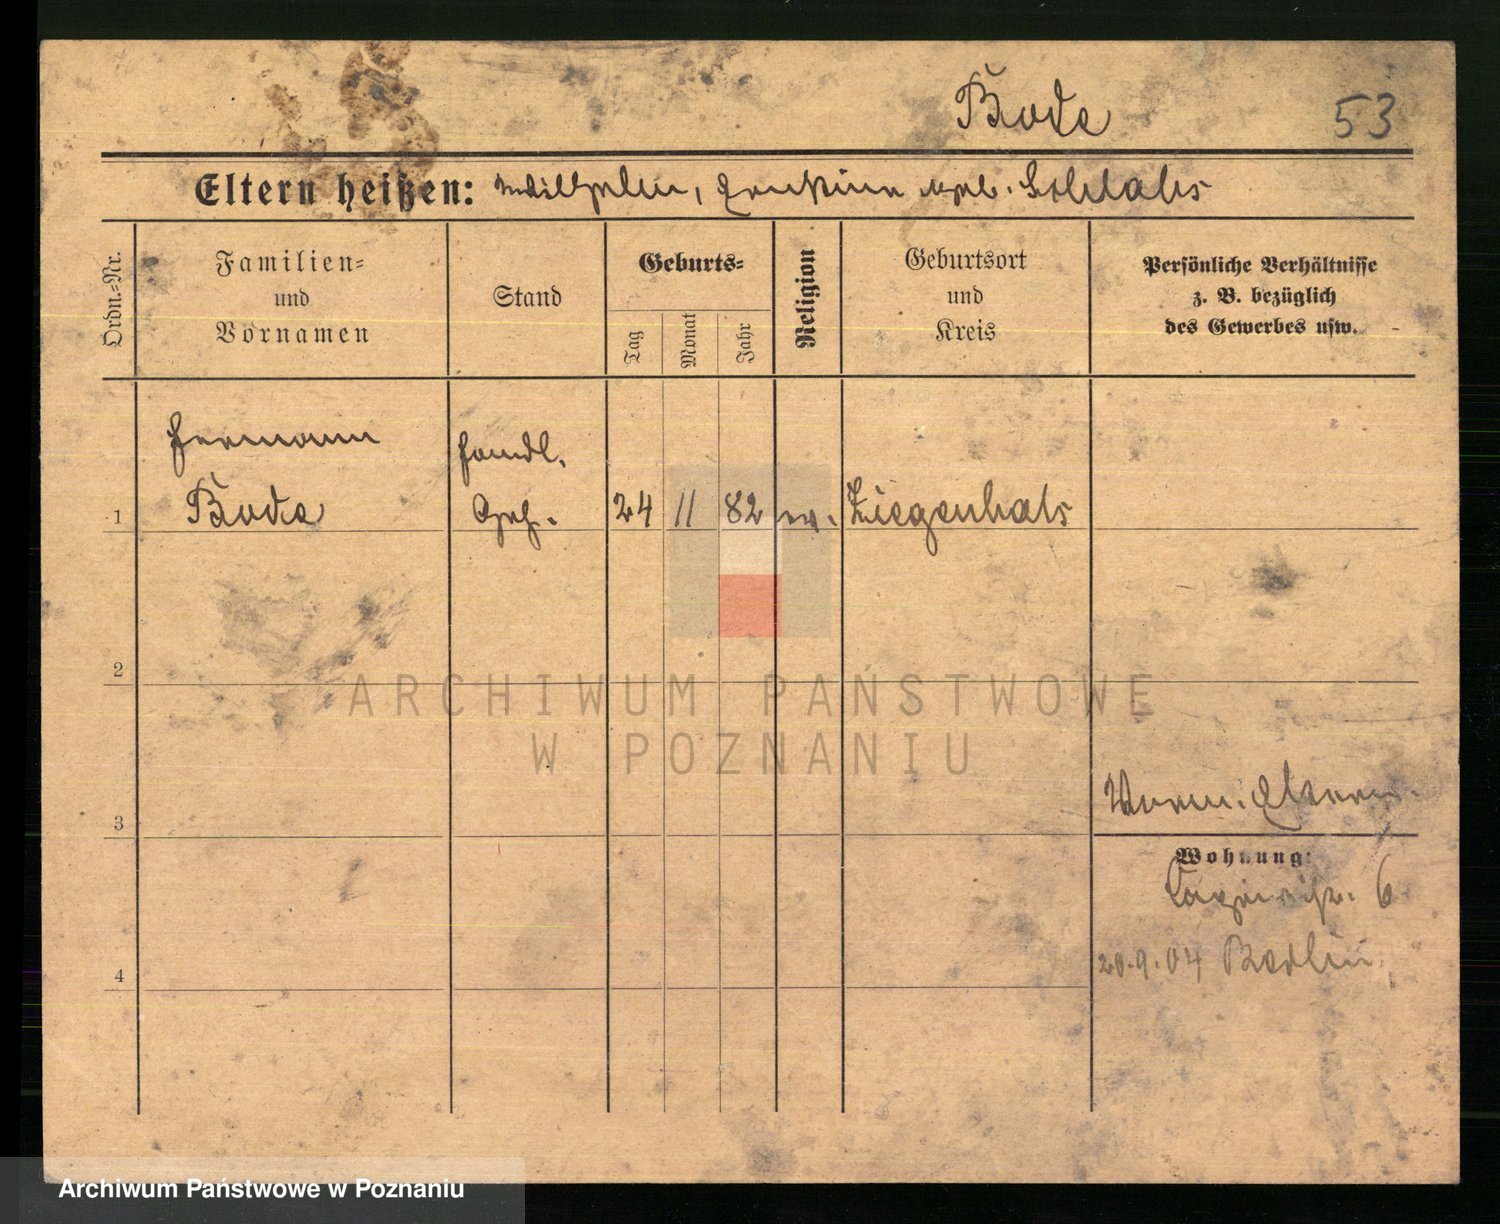 Bode 53
Eltern heißen: Wilhelm, geb.
Ordn.-Nr.
Familien-
und
Vornamen
Stand
Geburts-
Tag
Monat
Jahr
Religion
Geburtsort
und
Kreis
Persönliche Verhältnisse
z. B. bezüglich
des Gewerbes usw.
Hermann
Handl.
1 Bode Geh. 24 11 82 ev. Ziegenhals
2
ARCHIWUM PAŃSTWOWE
W POZNANIU
3
Wohnung:
6
20.9.04 Berlin
4
Archiwum Państwowe w Poznaniu